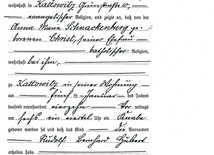 wohnhaft in Kattowitz, Grünstraße 10,
evangelischer Religion, und zeigte an, daß von der
Anna Maria Schnackenberg ge-
borenen Christ, seiner Ehefrau
katholischer Religion,
wohnhaft bei ihm,
Kattowitz, in seiner Wohnung
am fünf Januar des Jahres
tausend neunhundert vierzehn Vor mittags
um sechs ein viertel Uhr ein Knabe
geboren worden sei und daß das Kind die Vornamen
Rudolf Bernhard Hubert
erhalten habe.